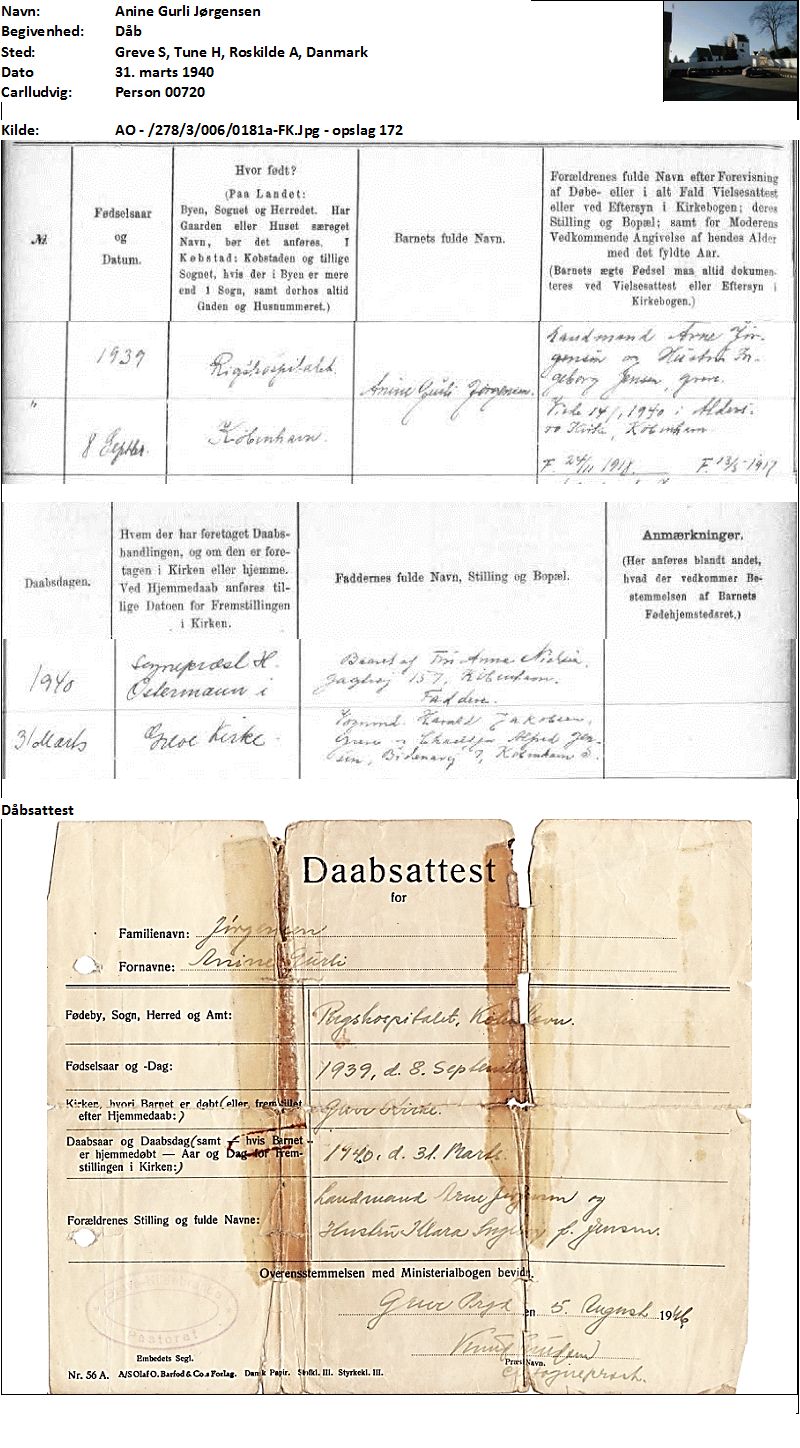 Navn: Anine Gurli Jørgensen
Begivenhed: Dåb
Sted: Greve S, Tune H, Roskilde A, Danmark
Dato 31. marts 1940
Carlludvig: Person 00720
Kilde: AO - /278/3/006/0181a-FK.Jpg - opslag 172
№
Fødselsaar
og
Datum.
Hvor født?
(Paa Landet:
Byen, Sognet og Herredet. Har
Gaarden eller Huset særeget
Navn, bør det anføres. I
Købstad: Købstaden og tillige
Sognet, hvis der i Byen er mere
end 1 Sogn, samt derhos altid
Gaden og Husnummeret.)
Barnets fulde Navn.
Forældrenes fulde Navn efter Forevisning
af Døbe- eller i alt Fald Vielsesattest
eller ved Eftersyn i Kirkebogen; deres
Stilling og Bopæl; samt for Moderens
Vedkommende Angivelse af hendes Alder
med det fyldte Aar.
(Barnets ægte Fødsel maa altid dokumen-
teres ved Vielsesattest eller Eftersyn i
Kirkebogen.)
"
1939
8 Septbr.
Rigshospitalet
København.
Anine Gurli Jørgensen.
Landmand Arne Jør-
gensen og Hustru In-
geborg Jensen, Greve.
Viede 14/1 1940 i Alders-
ro Kirke, København
F. 24/11 1918. F. 13/5-1917
Daabsdagen.
Hvem der har foretaget Daabs-
handlingen, og om den er fore-
tagen i Kirken eller hjemme.
Ved Hjemmedaab anføres til-
lige Datoen for Fremstillingen
i Kirken.
Faddernes fulde Navn, Stilling og Bopæl.
Anmærkninger.
(Her anføres blandt andet,
hvad der vedkommer Be-
stemmelsen af Barnets
Fødehjemstedsret.)
1940
31 Marts
Sognepræst H.
Ostermann i
Greve Kirke.
Baaret af Fru Anna Nielsen,
Jagtvej 157, København.
Faddere.
Harald Jakobsen,
Greve Alfred Jen-
sen, 7, København S.
Dåbsattest
Daabsattest
for
Familienavn: Jørgensen
Fornavne: Anine Gurli
Fødeby, Sogn, Herred og Amt: Rigshospitalet, København.
Fødselsaar og -Dag: 1939, d. 8. September
Kirken, hvori Barnet er døbt (eller fremstillet
efter Hjemmedaab:) Greve Kirke.
Daabsaar og Daabsdag (samt — hvis Barnet
er hjemmedøbt — Aar og Dag for Frem-
stillingen i Kirken:) 1940, d. 31. Marts.
Forældrenes Stilling og fulde Navne: Landmand Arne Jørgensen og
Hustru Klara Ingeborg f. Jensen.
Overensstemmelsen med Ministerialbogen bevidnes
Greve Prgd. den 5. August 1946
Knud
Præstens Navn.
Pastorat
Embedets Segl.
Nr. 56 A. A/S Olaf O. Barfod & Co.s Forlag. Dansk Papir. Stofkl. III. Styrkekl. III.